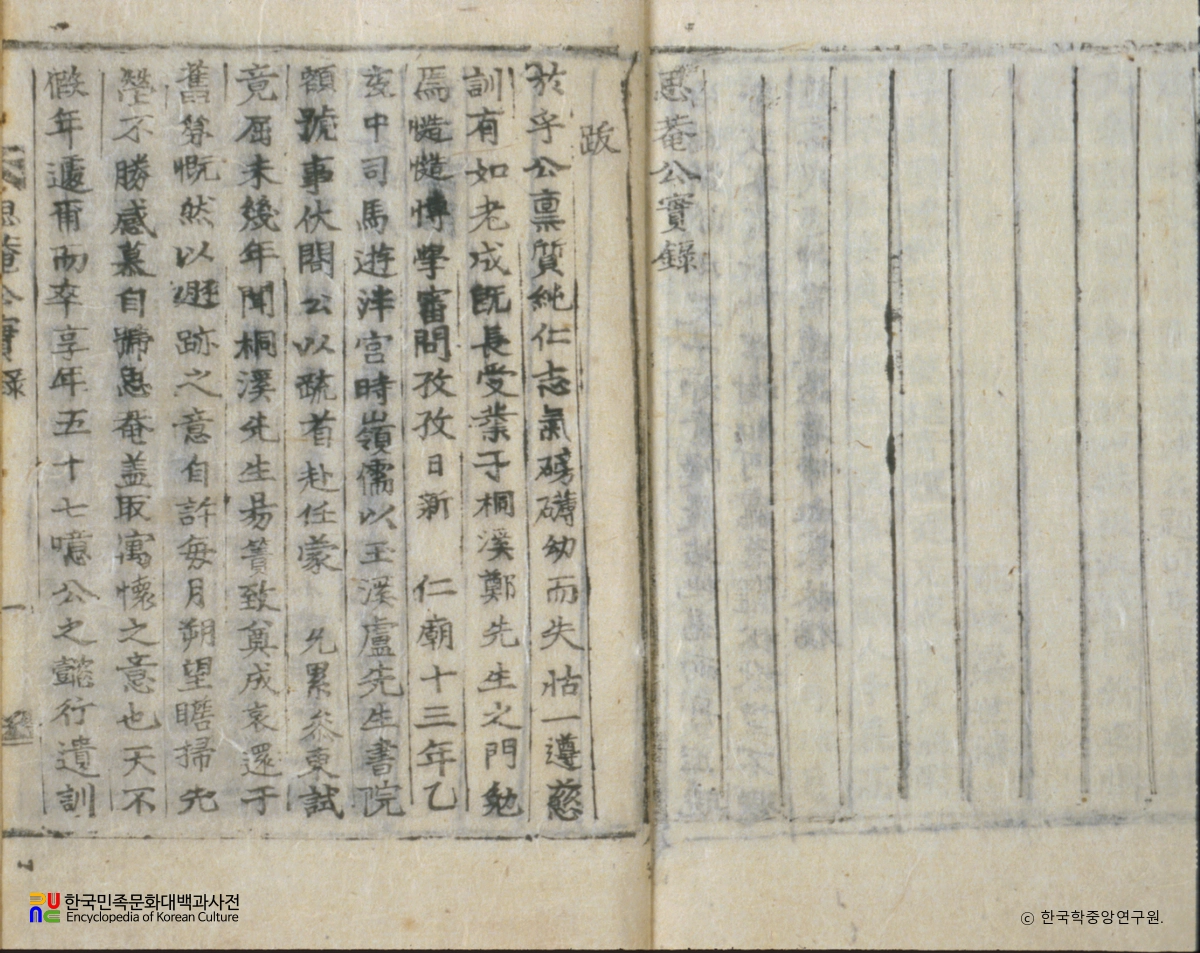 思菴公實錄
跋
於乎公稟質純仁志氣磅礴幼而失怙一遵慈
訓有如老成旣長受業于桐溪鄭先生之門勉
焉慥慥博學審問孜孜日新 仁廟十三年乙
亥中司馬遊泮宮時嶺儒以玉溪盧先生書院
額號事伏閤公以疏首赴任蒙 允累參東試
竟屈未幾年聞桐溪先生易簀致奠成哀還于
舊第慨然以遯跡之意自許每月朔望瞻掃先
塋不勝感慕自號思菴盖取寓懷之意也天不
假年遽爾而卒享年五十七噫公之懿行遺訓
思菴公實錄 一
한국민족문화대백과사전
Encyclopedia of Korean Culture
© 한국학중앙연구원.